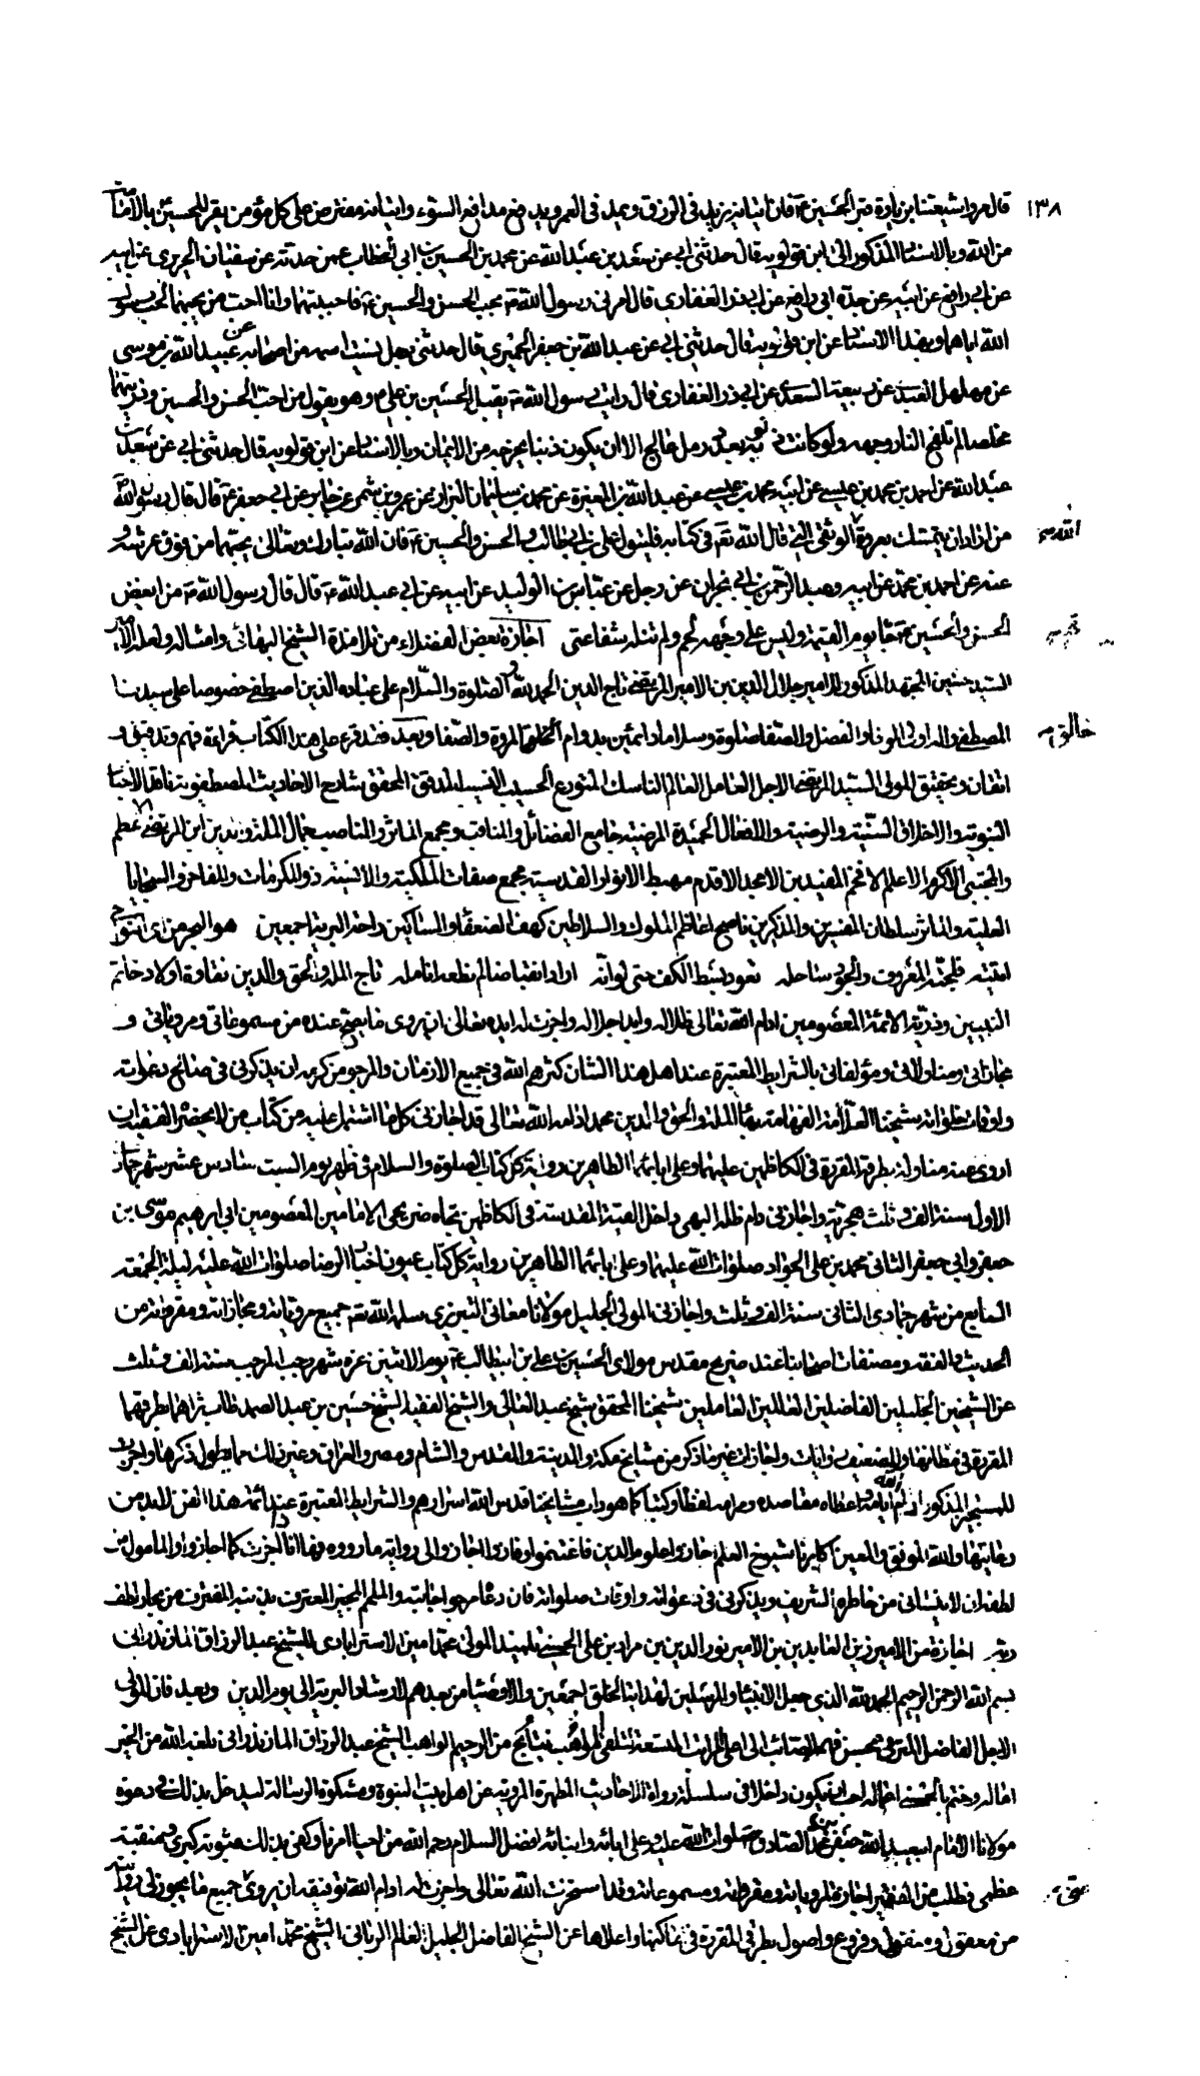 ١٣٨
قال مروا شيعتنا بزيارة قبر الحسين ع فان اتيانه يزيد في الرزق ويمد في العمر ويدفع مدافع السوء واتيانه مفترض على كل مؤمن يقر للحسين بالامامة
من الله وبالاسناد المذكور الى ابن قولويه قال حدثني ابي عن سعد بن عبد الله عن محمد بن الحسين بن ابي الخطاب عمن حدثه عن سفيان الجريري عن ابيه
عن ابي رافع عن ابيه عن جده ابي رافع عن ابي ذر الغفاري قال امرني رسول الله ص بحب الحسن والحسين ع فاحببتهما وانا احب من يحبهما لحب رسول
الله اياهما وبهذا الاسناد عن ابن قولويه قال حدثني ابي عن عبد الله بن جعفر الحميري قال حدثني رجل نسيت اسمه من اصحابنا عن عبيد الله بن موسى
عن مهلهل العبدي عن ربيعة السعدي عن ابي ذر الغفاري قال رايت رسول الله ص يقبل الحسين بن علي ع وهو يقول من احب الحسن والحسين وذريتهما
مخلصا لم تلفح النار وجهه ولو كانت ذنوبه بعدد رمل عالج الا ان يكون ذنبا يخرجه من الايمان وبالاسناد عن ابن قولويه قال حدثني ابي عن سعد بن
عبد الله عن احمد بن محمد بن عيسى عن ابيه محمد بن عيسى عن عبد الله بن المغيرة عن محمد بن سليمان البزاز عن عمرو بن شمر عن جابر عن ابي جعفر ع قال قال رسول الله
من اراد ان يتمسك بعروة الوثقى التي قال الله تع في كتابه فليتول علي بن ابي طالب والحسن والحسين ع فان الله تبارك وتعالى يحبهما من فوق عرشه و
عنه عن احمد بن محمد عن ابيه وعبد الرحمن بن ابي نجران عن رجل عن عباس بن الوليد عن ابيه عن ابي عبد الله ع قال قال رسول الله ص من ابغض
الحسن والحسين ع جاء يوم القيمة وليس على وجهه لحم ولم تنله شفاعتي اجازة بعض الفضلاء من تلامذة الشيخ البهائي وامثاله ولعله الامير
السيد حسين المجتهد المذكور للامير جلال الدين بن الامير المرتضى تاج الدين الحمد لله والصلوة والسلام على عباده الذين اصطفى خصوصا على سيدنا
المصطفى واله اولي الوفاء والفضل والصفا صلوة وسلاما دائمين بدوام المروة والصفا وبعد فقد قرء على هذا الكتاب قراءة فهم وتدقيق و
اتقان وتحقيق المولى السيد المرتضى الاجل العامل العالم الناسك المتورع الحسيب النسيب المدقق المحقق شارح الاحاديث المصطفوية ناقل الاخبار
النبوية والاخلاق السنية والرضية والافعال الحميدة المرضية جامع الفضائل والمناقب ومجمع الماثر والمناصب جمال الملة والدين ابن المرتضى الاعظم
والمجتبى الاكرم الاعلم الافخم المفيد بن الامجد الاقدم مهبط الانوار القدسية مجمع صفات الملكية والانسية ذو المكرمات والمفاخر والسجايا
العلية والماثر سلطان المفسرين والمذكرين ناصح اعاظم الملوك والسلاطين كهف الضعفاء والمساكين راحة البرية اجمعين هو البحر من اي النواحي
اتيته فلجته المعروف والجود ساحله تعود بسط الكف حتى لو انه اراد انقباضا لم تطعه انامله تاج الملة والحق والدين نقاوة اولاد خاتم
النبيين وذرية الائمة المعصومين ادام الله تعالى ظلاله وايد اجلاله واجزت له ايده تعالى ان يروي ما يصح عنده من مسموعاتي ومروياتي و
مجازاتي ومناولاتي ومؤلفاتي بالشرايط المعتبرة عند اهل هذا الشان كثرهم الله في جميع الازمان والمرجو من كرمه ان يذكرني في صالح دعواته
واوقات خلواته شيخنا العلامة الفهامة بهاء الملة والحق والدين محمد ادامه الله تعالى قد اجازني كل ما اشتمل عليه من كتاب من لا يحضره الفقيه ان
اروي عنه مناولة بطرقه المقررة في الكاظمين عليهما وعلى ابائهما الطاهرين رواية كل كتاب الصلوة والسلام في ظهر يوم السبت سادس عشر شهر جمادى
الاول سنة الف وثلث هجرية واجازني دام ظله البهي داخل القبة المقدسة في الكاظمين تجاه ضريحي الامامين المعصومين ابي ابرهيم موسى بن
جعفر وابي جعفر الثاني محمد بن علي الجواد صلوات الله عليهما وعلى ابائهما الطاهرين رواية كل كتاب عيون اخبار الرضا صلوات الله عليه ليلة الجمعة
السابع من شهر جمادى الثاني سنة الف وثلث واجازني المولى الجليل مولانا معاني التبريزي سلمه الله تع جميع مروياته ومجازاته ومقرواته من
الحديث والفقه ومصنفات اصحابنا عند ضريح مقدس مولاي الحسين بن علي بن ابيطالب ع يوم الاثنين غره شهر رجب المرجب سنة الف وثلث
عن الشيخين الجليلين الفاضلين العالمين العاملين شيخنا المحقق شيخ عبد العالي والشيخ الفقيه الشيخ حسين بن عبد الصمد طاب ثراهما بطرقهما
المقررة في مظانها وللضعيف روايات واجازات غير ما ذكر من مشايخ مكة والمدينة والمقدس والشام ومصر والعراق وغير ذلك مما يطول ذكرها واجزت
للمستجيز المذكور ادام الله ايامه واعطاه مقاصده ومرامه لفظا وكتبا كما هو داب مشايخنا قدس الله اسرارهم والشرايط المعتبرة عند ائمة هذا الفن لا بد من
رعايتها والله الموفق والمعين اكابرنا شيوخ العلم حازوا علوم الدين فاغتنموا وفازوا اجازوا لي رواية ما رووه فها انا اجزت كما اجازوا والمامول من
لطفه ان لا ينساني من خاطره الشريف ويذكرني في دعواته واوقات صلواته فان دعاه مرجو اجابته والملم المجيز المعترف بذنبه المغترف من بحار لطف
ربه اجازة من الامير زين العابدين بن الامير نور الدين بن مراد بن علي الحسيني تلميذ المولى محمد امين الاسترابادي للشيخ عبد الرزاق المازندراني
بسم الله الرحمن الرحيم الحمد لله الذي جعل الانبياء والمرسلين لهداية الخلق اجمعين والاوصياء من بعدهم لارشاد البرية الى يوم الدين وبعد فان المولى
الاجل الفاضل المترقي بحسن فهمه الصائب الى اعلى المراتب المستعد لتلقي المواهب نتايج من الرحيم الواهب الشيخ عبد الرزاق المازندراني بلغه الله من الخير
اماله وختم بالحسنى اعماله احب ان يكون داخلا في سلسلة رواة الاحاديث المطهرة المروية عن اهل بيت النبوة ومشكوة الرسالة ليدخل بذلك في دعوة
مولانا الامام ابيعبد الله جعفر بن محمد الصادق صلوات الله عليه وعلى ابائه وابنائه افضل السلام رحم الله من احيا امرنا وكفى بذلك مثوبة كبرى ومنقبة
عظمى فطلب من الفقير اجازة لمروياته ومقرواته ومسموعاته وقد استخرت الله تعالى واجزت له ادام الله توفيقه ان يروي جميع ما يجوز لي روايته
من معقول ومنقول وفروع واصول بطرقي المقررة في اماكنها واعلاها عن الشيخ الفاضل الجليل العالم الرباني الشيخ محمد امين الاسترابادي عن الشيخ